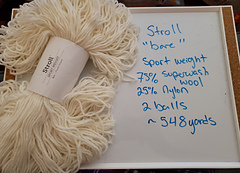 Stroll
Stroll
"bare"
Sport weight
75% superwash
wool
25% Nylon
2 balls
~ 548 yards